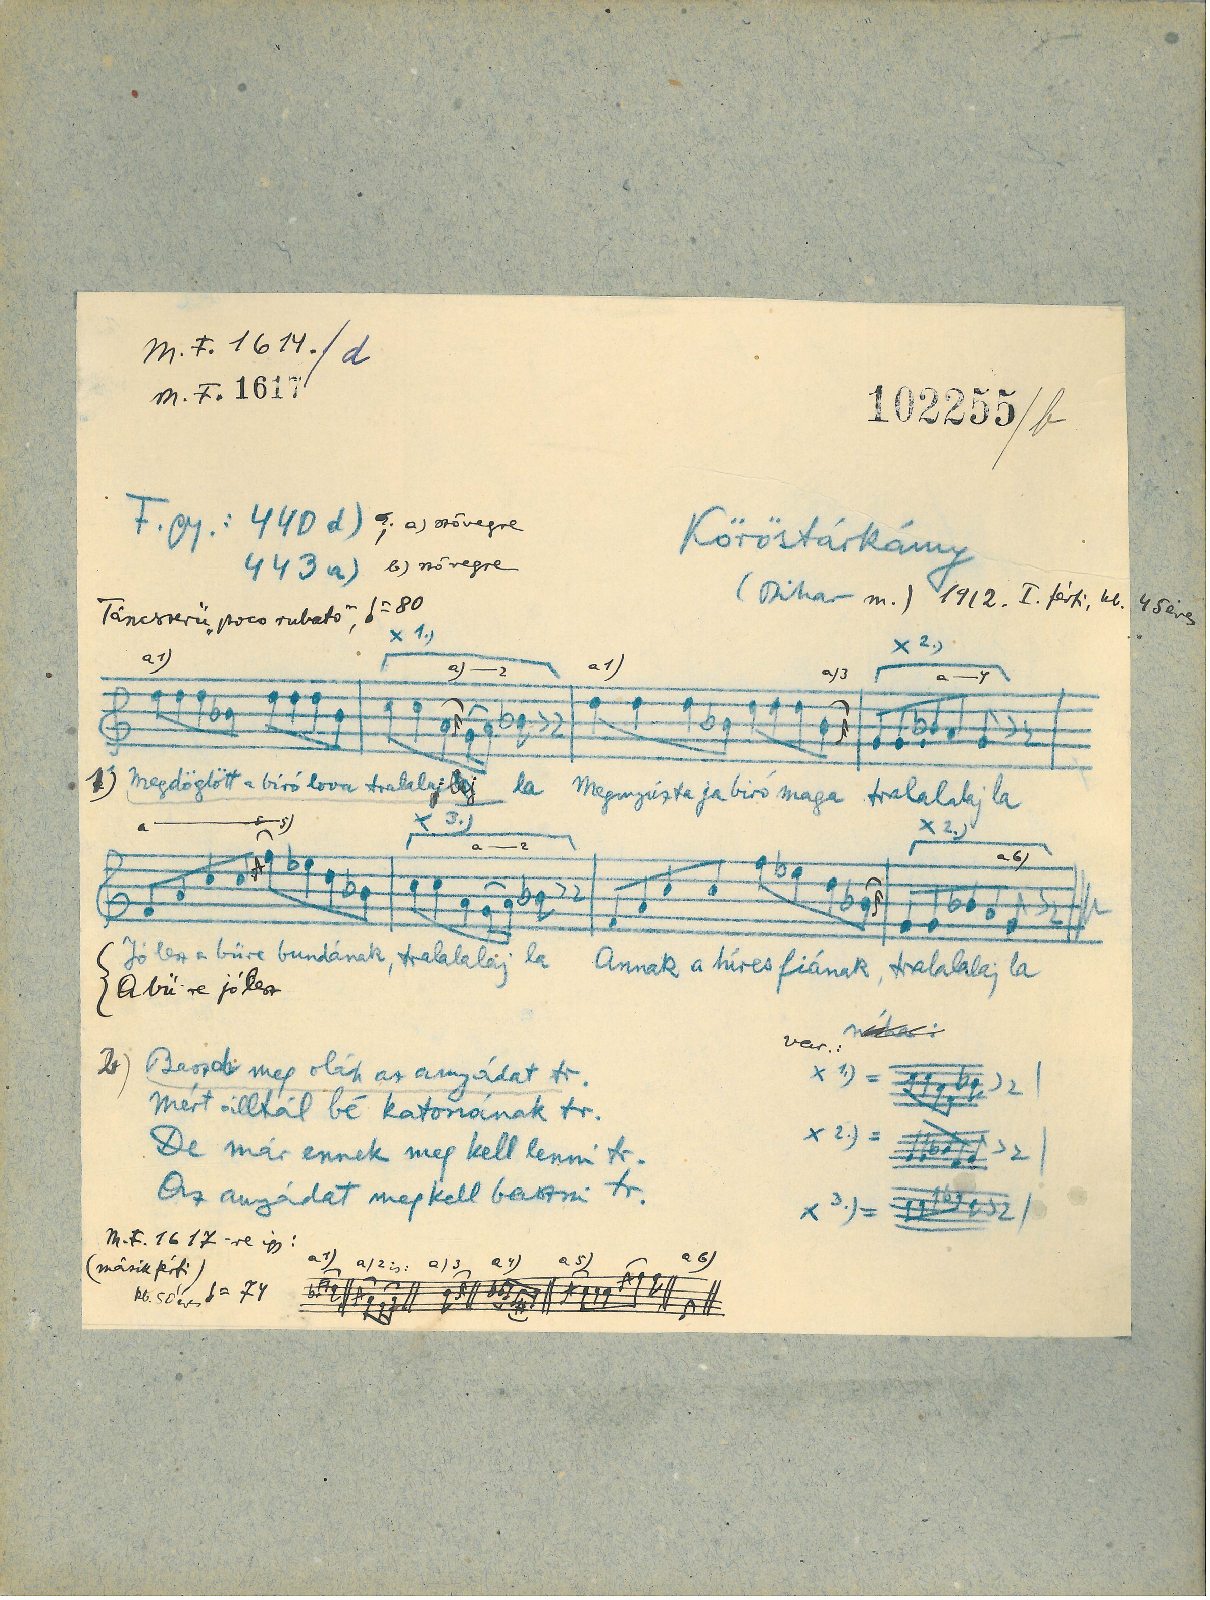 M. F. 1614./d
M. F. 1617
102255/b
F. gy.: 440 d) a) szövegre
443 a) b) szövegre
Köröstárkány
(Bihar m.) 1912. I. férfi, kb. 45 éves
Táncszerű „poco rubato”, = 80
x 1.) x 2.)
a1) a)—2 a1) a)3 a—4
1) Megdöglött a biró lova tralalalaj la Megnyúzta ja biró maga tralalalaj la
x 3.) x 2.)
a—5) a—2 a6)
Jó lesz a bűre bundának, tralalalaj la Annak a híres fiának, tralalalaj la
A bü-re jó lesz
var.: néha:
2) Baszd meg oláh az anyádat tr.
Mért álltál bé katonának tr.
De már ennek meg kell lenni tr.
Az anyádat meg kell baszni tr.
x 1.) =
x 2.) =
x 3.) =
M.F. 1617-re így:
(másik férfi)
kb. 50 éves = 74
a1) a)2 is: a)3 a4) a5) a6)